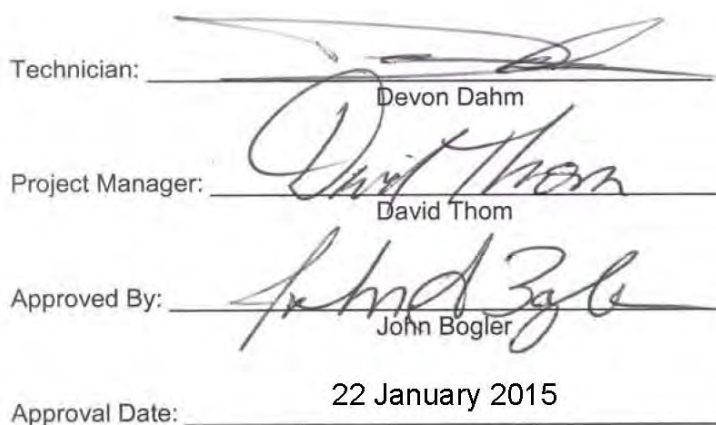 Technician:
Devon Dahm
Project Manager: David Thom
David Thom
Approved By:
John Bogler
Approval Date: 22 January 2015